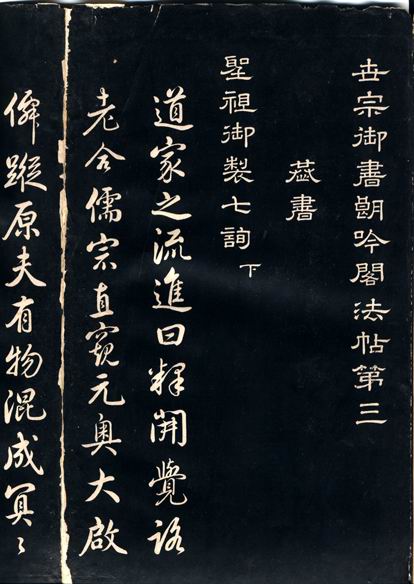 世宗御書朗吟閣法帖第三
恭書
聖祖御製七詢下
道家之流進曰釋開覺路
老合儒宗直窺元奧大啟
僊蹤原夫有物混成冥〻